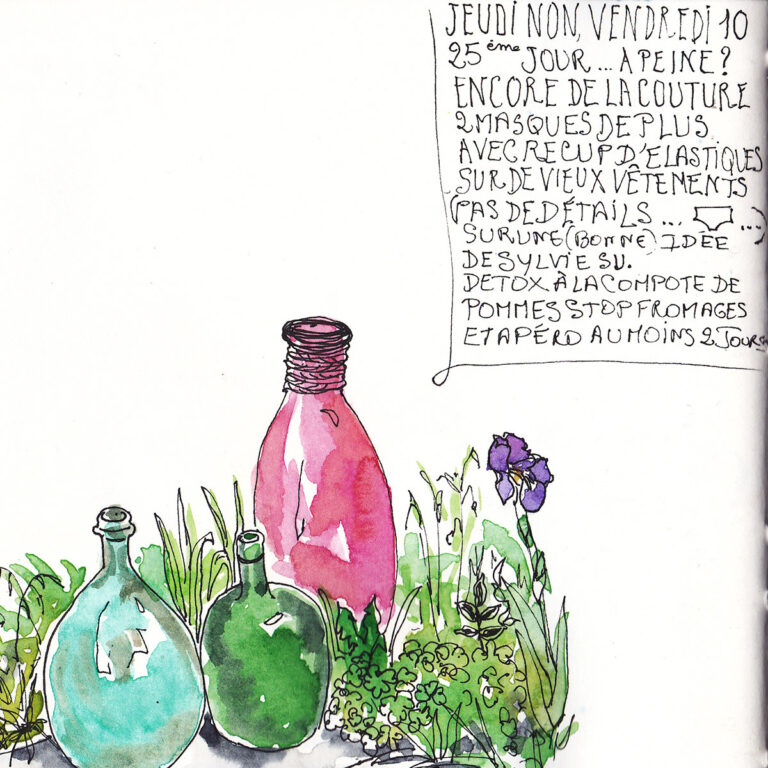 JEUDI NON, VENDREDI 10
25ème JOUR... A PEINE?
ENCORE DE LA COUTURE
2 MASQUES DE PLUS
AVEC RECUP D'ELASTIQUES
SUR DE VIEUX VÊTEMENTS
(PAS DE DÉTAILS... ...)
SUR UNE (BONNE) IDÉE
DE SYLVIE SU.
DETOX À LA COMPOTE DE
POMMES STOP FROMAGES
ET APÉRO AU MOINS 2 JOURS